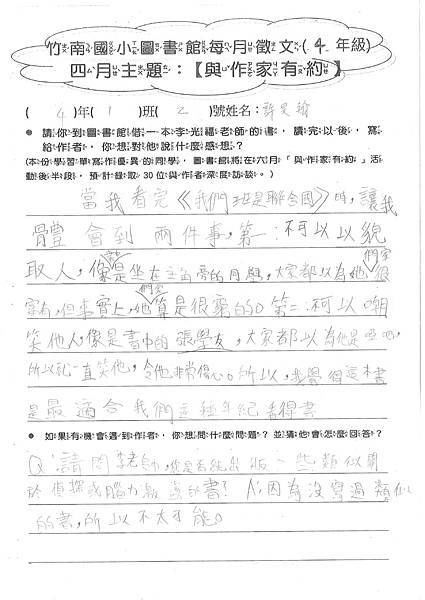 竹南國小圖書館每月徵文(4年級)
四月主題:【與作家有約】
(4)年(1)班(2)號姓名:許
● 請你到圖書館借一本李光福老師的書,讀完以後,寫
給作者,你想對他說什麼感想?
(本份學習單寫作優異的同學,圖書館將在六月「與作家有約」活
動後半段,預計錄取30位與作者深度訪談。)
當我看完《我們班是聯合國》時,讓我
體會到兩件事,第一:不可以以貌
取人,像是坐在主角旁的同學,大家都以為她們家很
富有,但事實上,她們家算是很窮的。第二:不可以嘲
笑他人,像是書中的張學友,大家都以為他是啞吧,
所以就一直笑他,令他非常傷心。所以,我覺得這本書
是最適合我們這種年紀看得書
● 如果有機會遇到作者,你想問什麼問題?並猜他會怎麼回答?
Q:請問李老師,您是否能出版一些類似關
於偵探或腦力激盪的書? A:因為沒寫過類似
的書,所以不太可能。